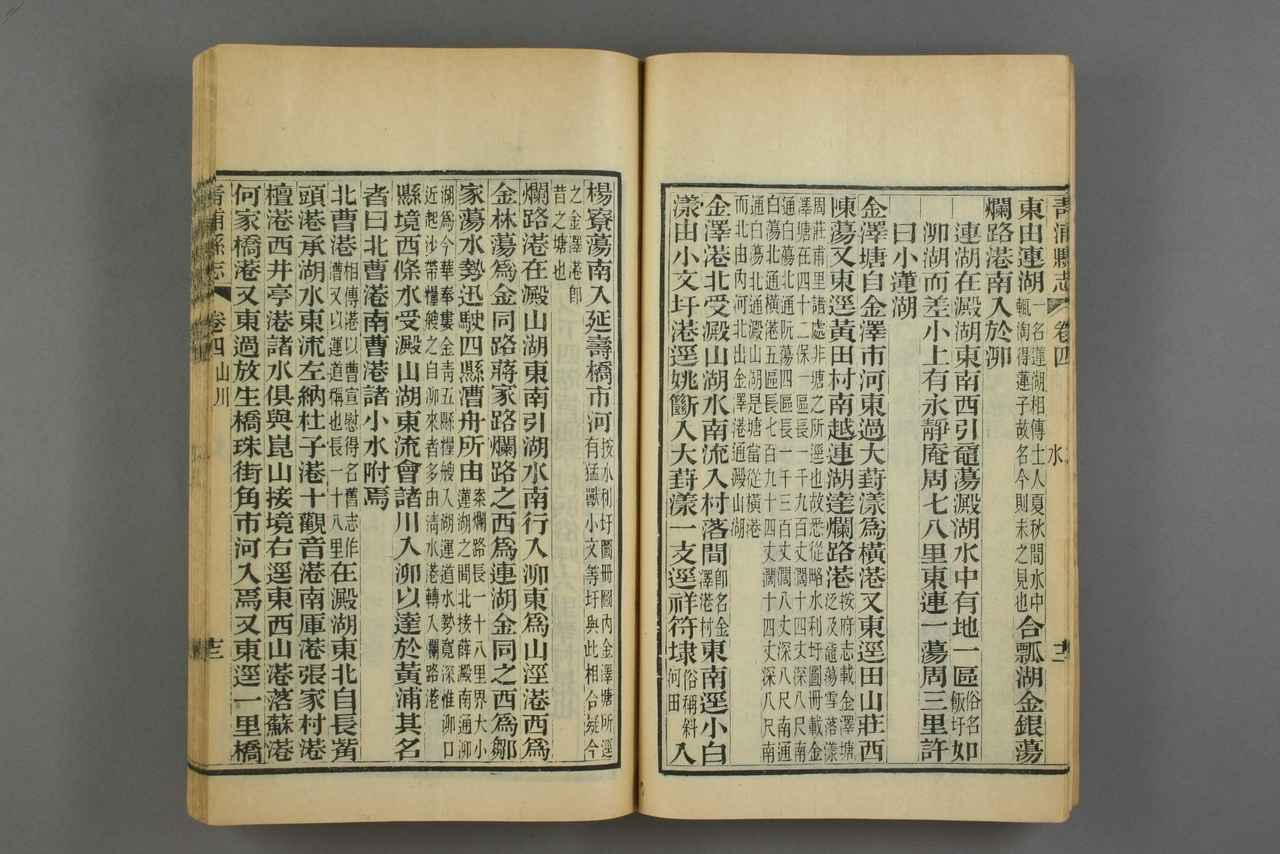 青浦縣志 卷四 水 十二
東由連湖一名蓮湖相傳土人夏秋間水中輒淘得蓮子故名今則未之見也合瓢湖金銀蕩
爛路港南入於泖
連湖在澱湖東南西引䆍蕩澱湖水中有地一區俗名飯圩如
泖湖而差小上有永靜庵周七八里東連一蕩周三里許
曰小蓮湖
金澤塘自金澤市河東過大葑漾爲橫港又東逕田山莊西
陳蕩又東逕黃田村南越連湖達爛路港按府志載金澤塘泛及䆍蕩雪落漾
周莊甫里諸處非塘之所逕也故悉從略水利圩圖冊載金
澤塘在四十二保一區長一千九百丈濶十四丈深八尺南
通白蕩北通阮蕩四區長一千三百丈濶八丈深八尺南通
白蕩北通橫港五區長七百九十四丈濶十四丈深八尺南
通白蕩北通澱山湖是塘當從橫港
而北由內河北出金澤港通澱山湖
金澤港北受澱山湖水南流入村落間卽名金澤港村東南逕小白
漾由小文圩港逕姚斷入大葑漾一支逕祥符埭俗稱斜河田入
楊寮蕩南入延壽橋市河按水利圩圖冊圖內金澤塘所逕有猛獸小文等圩與此相合疑今
之金澤港卽
昔之塘也
爛路港在澱山湖東南引湖水南行入泖東爲山涇港西爲
金林蕩爲金同路蔣家路爛路之西爲連湖金同之西爲鄒
家蕩水勢迅駛四縣漕舟所由案爛路長一十八里界大小蓮湖之間北接薛澱南通泖
湖爲今華奉婁金靑五縣糧艘入湖運道水勢寬深惟泖口
近起沙帶糧艘之自泖來者多由淸水港轉入爛路港
縣境西條水受澱山湖東流會諸川入泖以達於黃浦其名
者曰北曹港南曹港諸小水附焉
北曹港相傳港以曹宣慰得名舊志作漕又以運道稱也長一十八里在澱湖東北自長觜
頭港承湖水東流左納杜子港十觀音港南厙港張家村港
檀港西井亭港諸水俱與崑山接境右逕東西山港落蘇港
何家橋港又東過放生橋珠街角市河入焉又東逕一里橋
青浦縣志 卷四 山川 十三